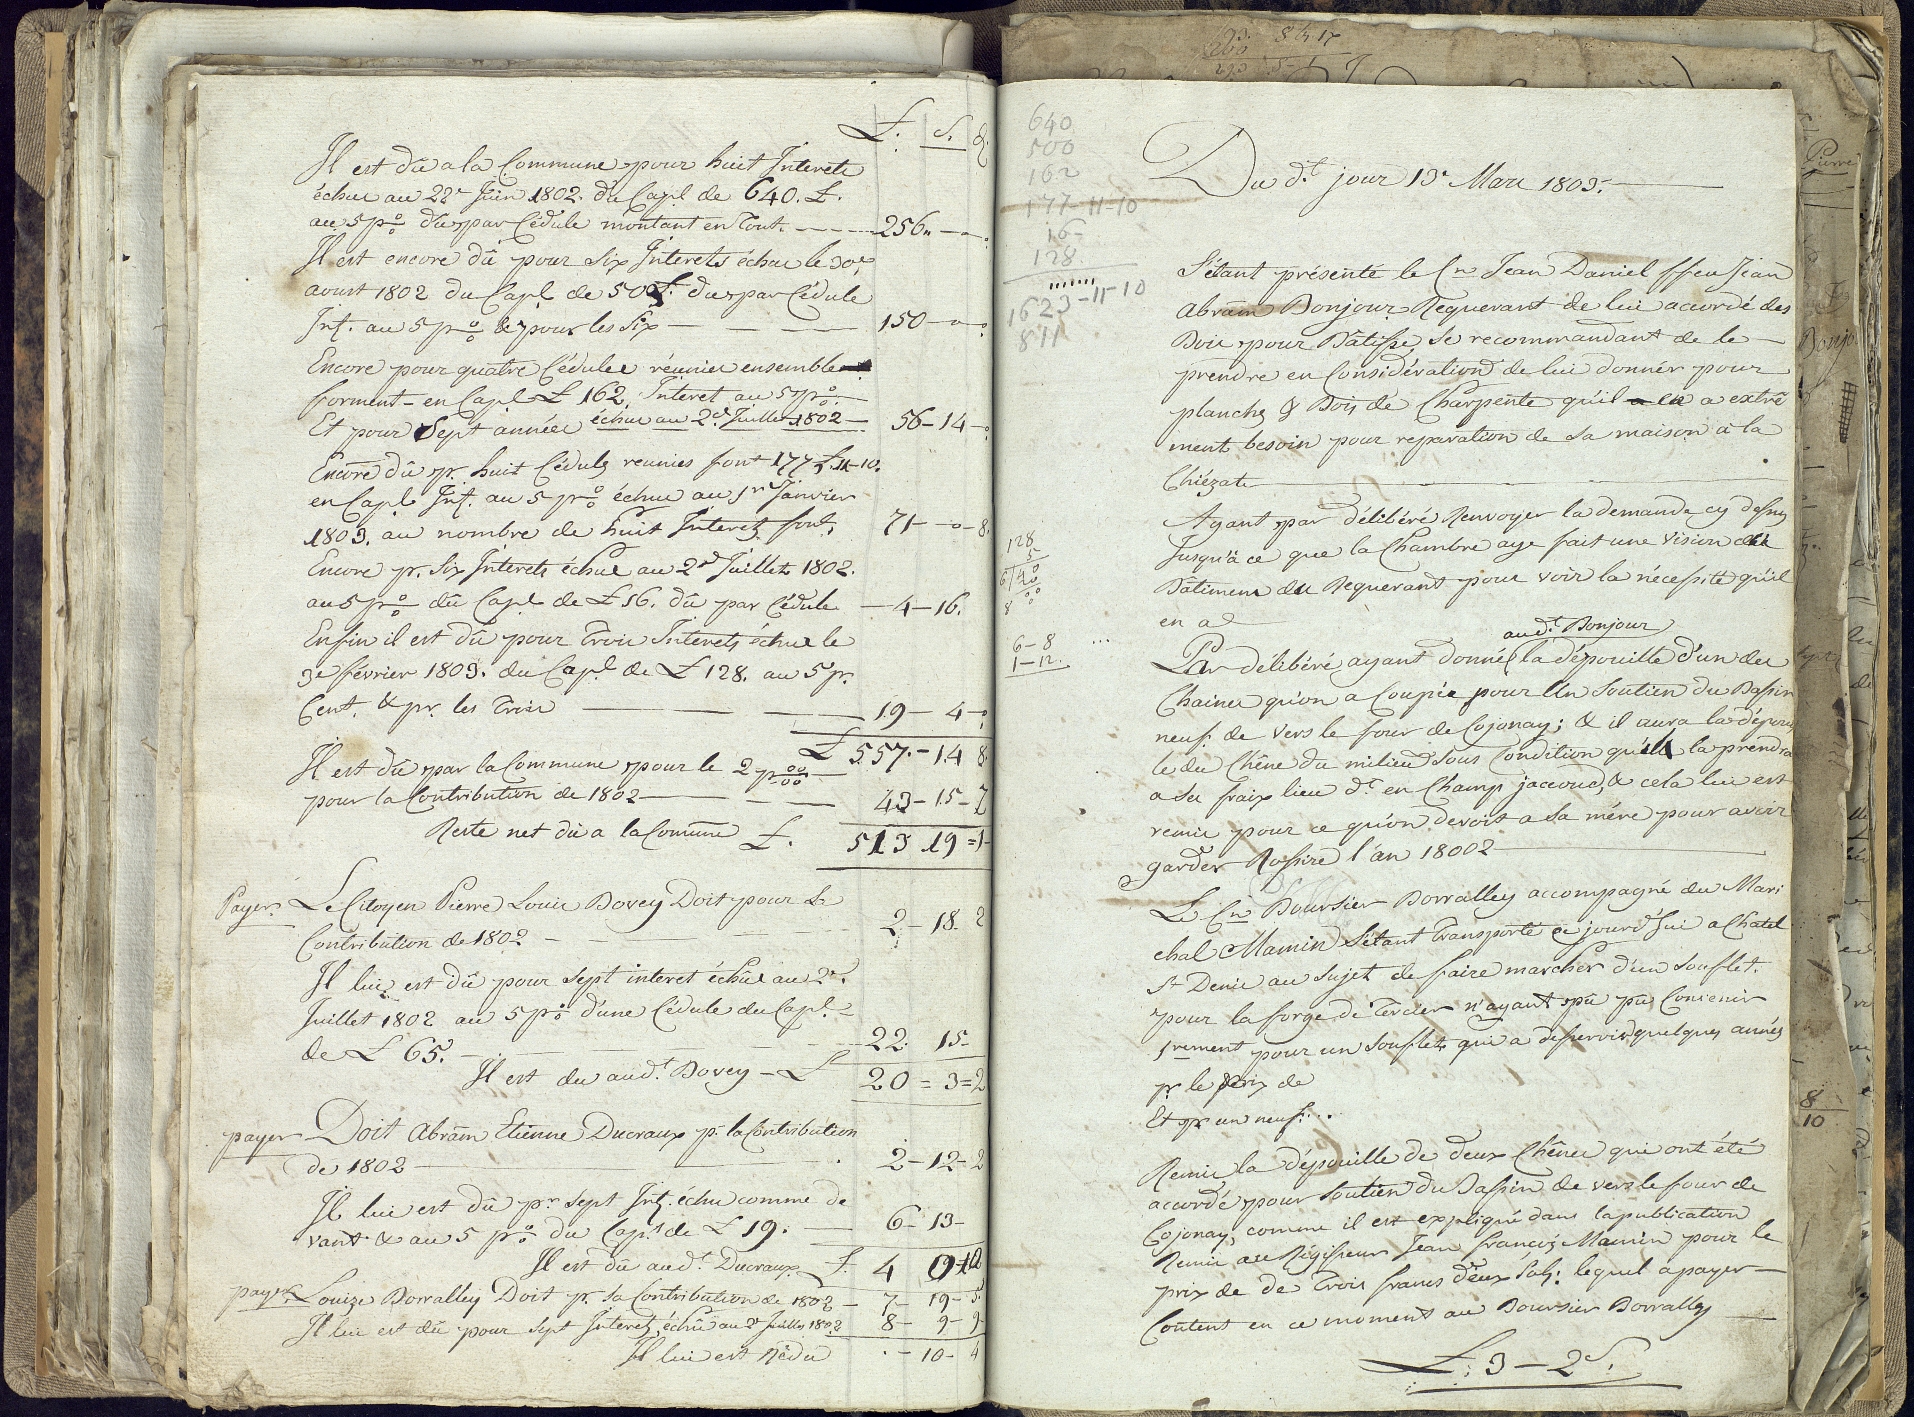 £. S. d.
Il est dû a la Commune pour huit Interets
échus au 22e Juin 1802. du Capl de 640. £.
au 5 p% dû par Cédule montant en Tout. — 256 " — " — "
Il est encore dû pour Six Interets échus le 30e
aoust 1802 du Capl de 500 £. du par Cédule
Int. au 5 p% & pour les Six — — — 150 — " — "
Encore pour quatre Cédules réunies ensemble
forment en Capl £ 162, Interet au 5 p%.
Et pour Sept années échus au 2d. Juillet 1802 — 56 — 14 — "
Encore dû pr. huit Céduls reunies font 177 £. 11-10.
en Capl Int. au 5 p% échus au 1r Janvier
1803. au nombre de huit Interets font, 71 — 0 — 8.
Encore pr. Six Interets échus au 2d Juillet 1802.
au 5 p% dû Capl de £ 16. dû par Cédule — 4 — 16.
Enfin il est dû pour Trois Interets échus le
3e février 1803. du Capl. de £ 128. au 5 pr.
Cent. & pr. les Trois — 19 — 4 — "
£ 557. — 14 8.
Il est dû par la Commune pour le 2 p‰
pour la Contribution de 1802 — — — 43 — 15 — 7
Reste net dû a la Commune £. 513 19 = 1
Payer. Le Citoyen Pierre Louis Bovey Doit pour Sa
Contribution de 1802 — 2 — 18 — 2
Il lui est dû pour Sept interet échûs au 2e.
Juillet 1802 au 5 p% d'une Cédule du Capl.
de £ 65. — 22. 15 —
Il est du aud.t Bovey — £ 20 = 3 = 2
payer Doit Abram Etienne Ducraux pr. la Contribution
de 1802 — 2 — 12 — 2
Il lui est dû pr Sept Int. échu comme de
vant & au 5 p% du Capl de £ 19. — 6 — 13 —
Il est dû aud.t Ducraux £. 4 0 10
payer Louize Borralley Doit pr. Sa Contribution de 1802 — 7 — 19 — 5.
Il lui est dû pour Sept Interets, échû au 2e Juillet 1802 8 — 9 — 9
Il lui est Rédu . — 10 — 4
640
500
162
177-11-10
16-
128.
1623-11-10
811
128
5
6/40
8
6-8
1-12.
Du d.t jour 13e Mars 1803.
S'étant présenté le Cn Jean Daniel ffeu Jean
Abram Bonjour Requerant de lui accordé des
Bois pour Bâtisse, Se recommandant de le
prendre en Considération de lui donnér pour
planchs & Bois de Charpente qu'il a extrê
ment besoin pour reparation de Sa maison à la
Chiézat
Ayant par délibéré Renvoyer la demande cy dessus
Jusqu'à ce que la Chambre aye fait une Vision des
Bâtimens du Requerant pour voir la nécessité qu'il
en a
aud.t Bonjour
Par délibéré ayant donné la dépouille d'un des
Chaines qu'on a Coupés pour Un Soutien du Bassin
neuf. de vers le four de Cojonay; & il aura la dépouil
le du Chêne du milieu Sous Condition qu'il la prendra
a Ses fraix lieu d.t en Champ jaccoud, & cela lui est
remis pour ce qu'on devoit a Sa mére pour avoir
garder Rossire l'an 18002
Le Cn Boursier Borralley accompagné du Mari
chal Mamin S'étant Transporté ce jourd'hui a Chatel
St Denis au Sujet de faire marcher d'un Souflet.
pour la forge de Tercier n'ayant pû pû Convenir
1rement pour un Souflet qui a desservis quelques années
pr. le prix de
Et pr un neuf...
Remis la dépouille de deux Chênes qui ont été
accordé pour Soutien du Bassin de vers le four de
Cojonay, comme il est expliqué dans la publication
Remis au Régisseur Jean francois Mamin pour le
prix de de Trois francs deux Sols: lequel a payer
Content en ce moment au Boursier Borralley
£. 3 — 2 S.
8
10